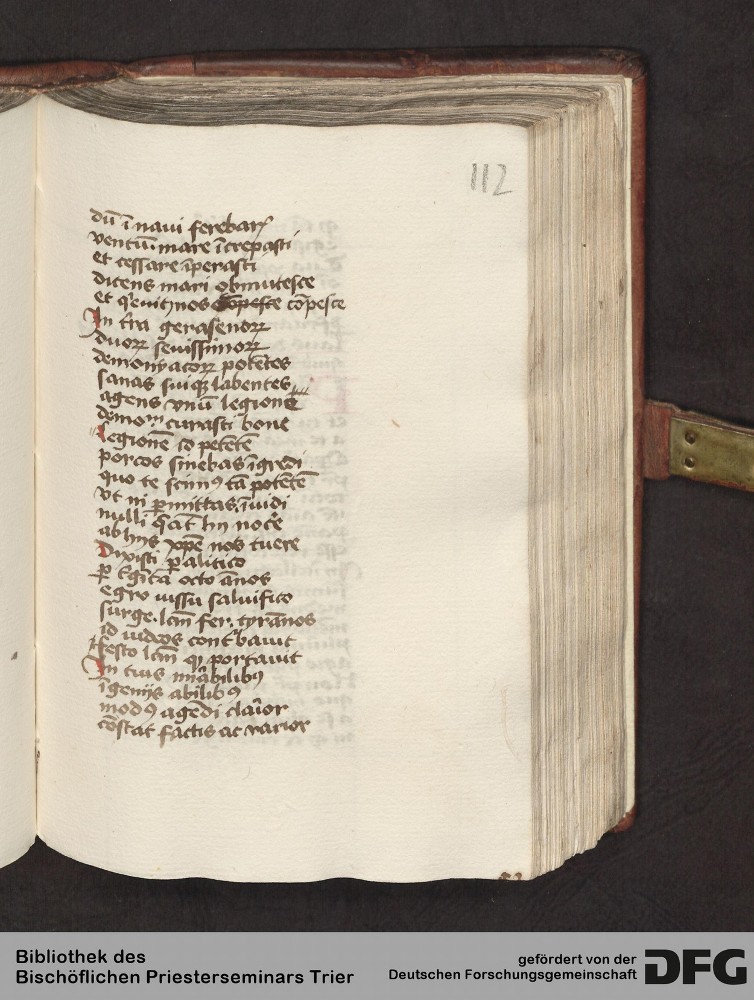 112
dū ī naui ferebarꝭ
ventū mare īcrepasti
et cessare īperasti
dicens mari obmutesce
et q̄ euitꝰ nos cōpesce
In tr̄a gerasenorꝝ
duorꝝ seuissimorꝝ
demonyacorꝝ potētes
sanas suiqꝫ labentes
agens vnū legionē
demo curasti bone
legionē id petētē
porcos sinebas īgredi
quo te scimꝰ tā potētē
vt ni ꝑmittas īuidi
nulli q̄at hu nocē
ab hijs xp̄e nos tuere
Dixisti ꝑalitico
octo ānos
egro iussu saluifico
surge lcm̄ fer tyrānos
id iudeos cont'bauit
festo lcm̄ qꝫ portauit
In tuis mirābilibꝰ
īgenijs abilibꝰ
modꝰ agēdi claīor
cōstat factis ac rarior
Bibliothek des
Bischöflichen Priesterseminars Trier
gefördert von der
Deutschen Forschungsgemeinschaft
DFG